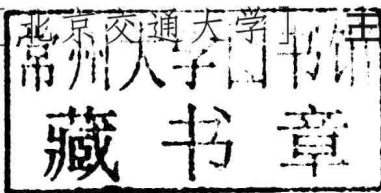 [北京交通大学] 主
常州大学图书馆
藏书章